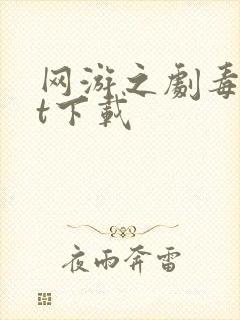 网游之劇毒
t下载
夜雨奔雷